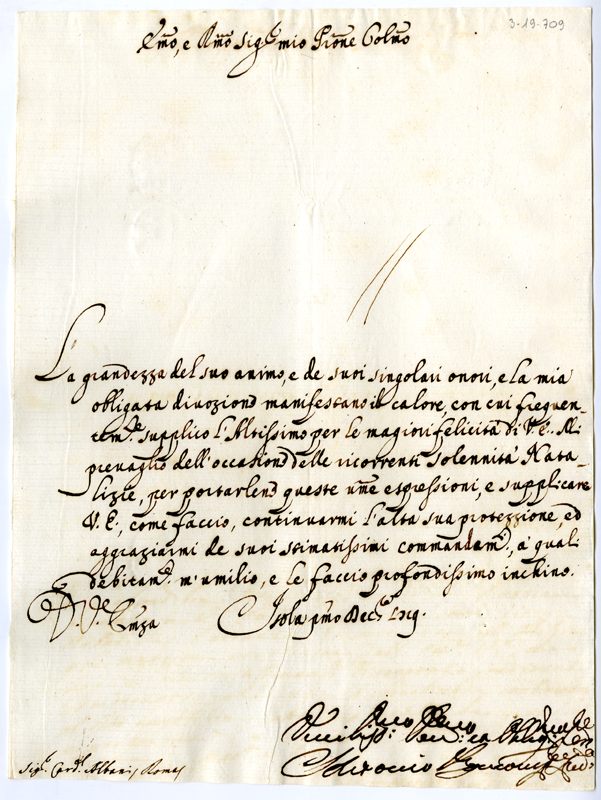 3-19-709
Emo, e Rmo Sig.r mio Prone Colmo
La grandezza del suo animo, e de suoi singolari onori, e la mia
obligata divozione manifestano il calore, con cui frequen-
tem.te supplico l'Altissimo per le magiori felicità di V. E. Mi
prevaglio dell'occasione delle ricorrenti solennità Nata-
lizie, per portarlene queste ume espressioni, e supplicare
V. E., come faccio, continuarmi l'alta sua protezzione, ed
aggraziarmi de suoi stimatissimi commandam.ti, a' quali
debitam.te m'umilio, e le faccio profondissimo inchino.
D. V. Emza Isola pmo Dec.
Sig.r Card.l Albani Roma